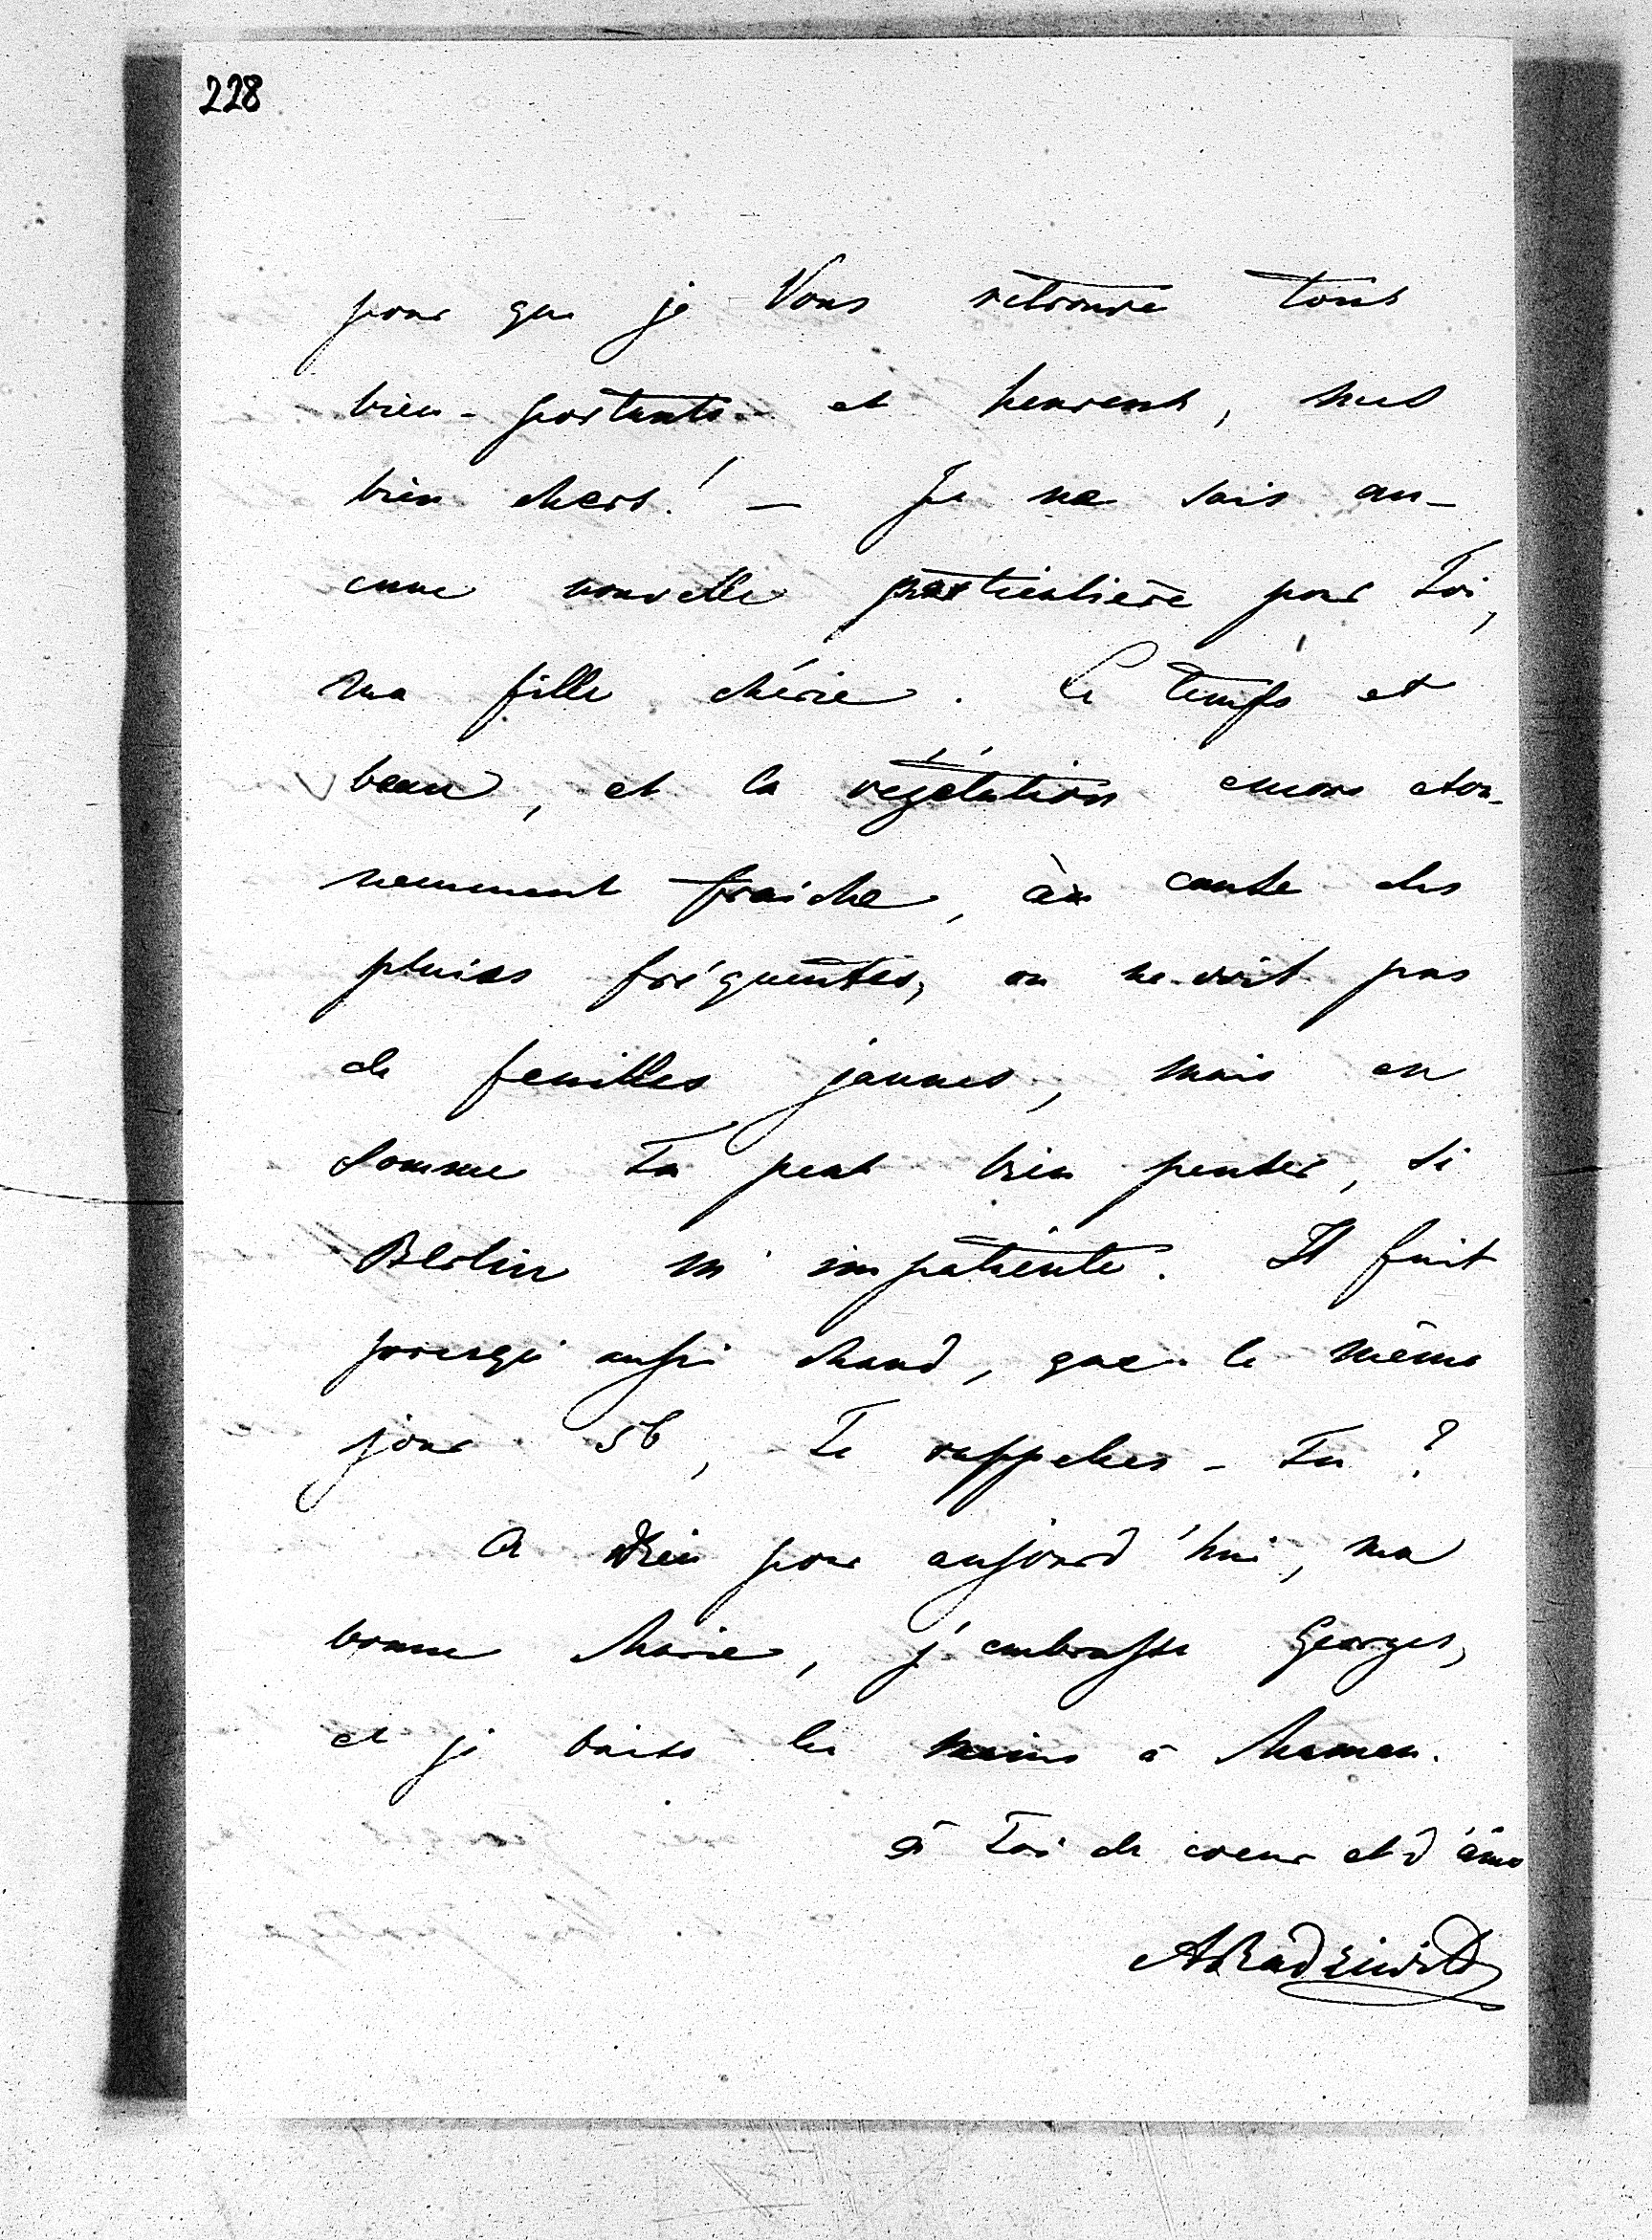 228
pour que je Vous retrouve tous
bien-portants et heureux, mes
bien chers! — Je ne sais au-
cune nouvelle particulière pour Toi,
ma fille chérie. Le temps est
beau, et la végétation encore éton-
nemment fraiche, à cause des
pluies fréquentes, on ne voit pas
de feuilles jaunes, mais en
somme Tu peux bien penser, si
Berlin m'impatiente. Il fait
presque aussi chaud, que le même
jour 56, Te rappeles-Tu?
A Dieu pour aujourd'hui, ma
bonne Marie, j'embrasse Georges,
et je baise les mains à Maman.
à Toi de coeur et d'âme
ARadziwill